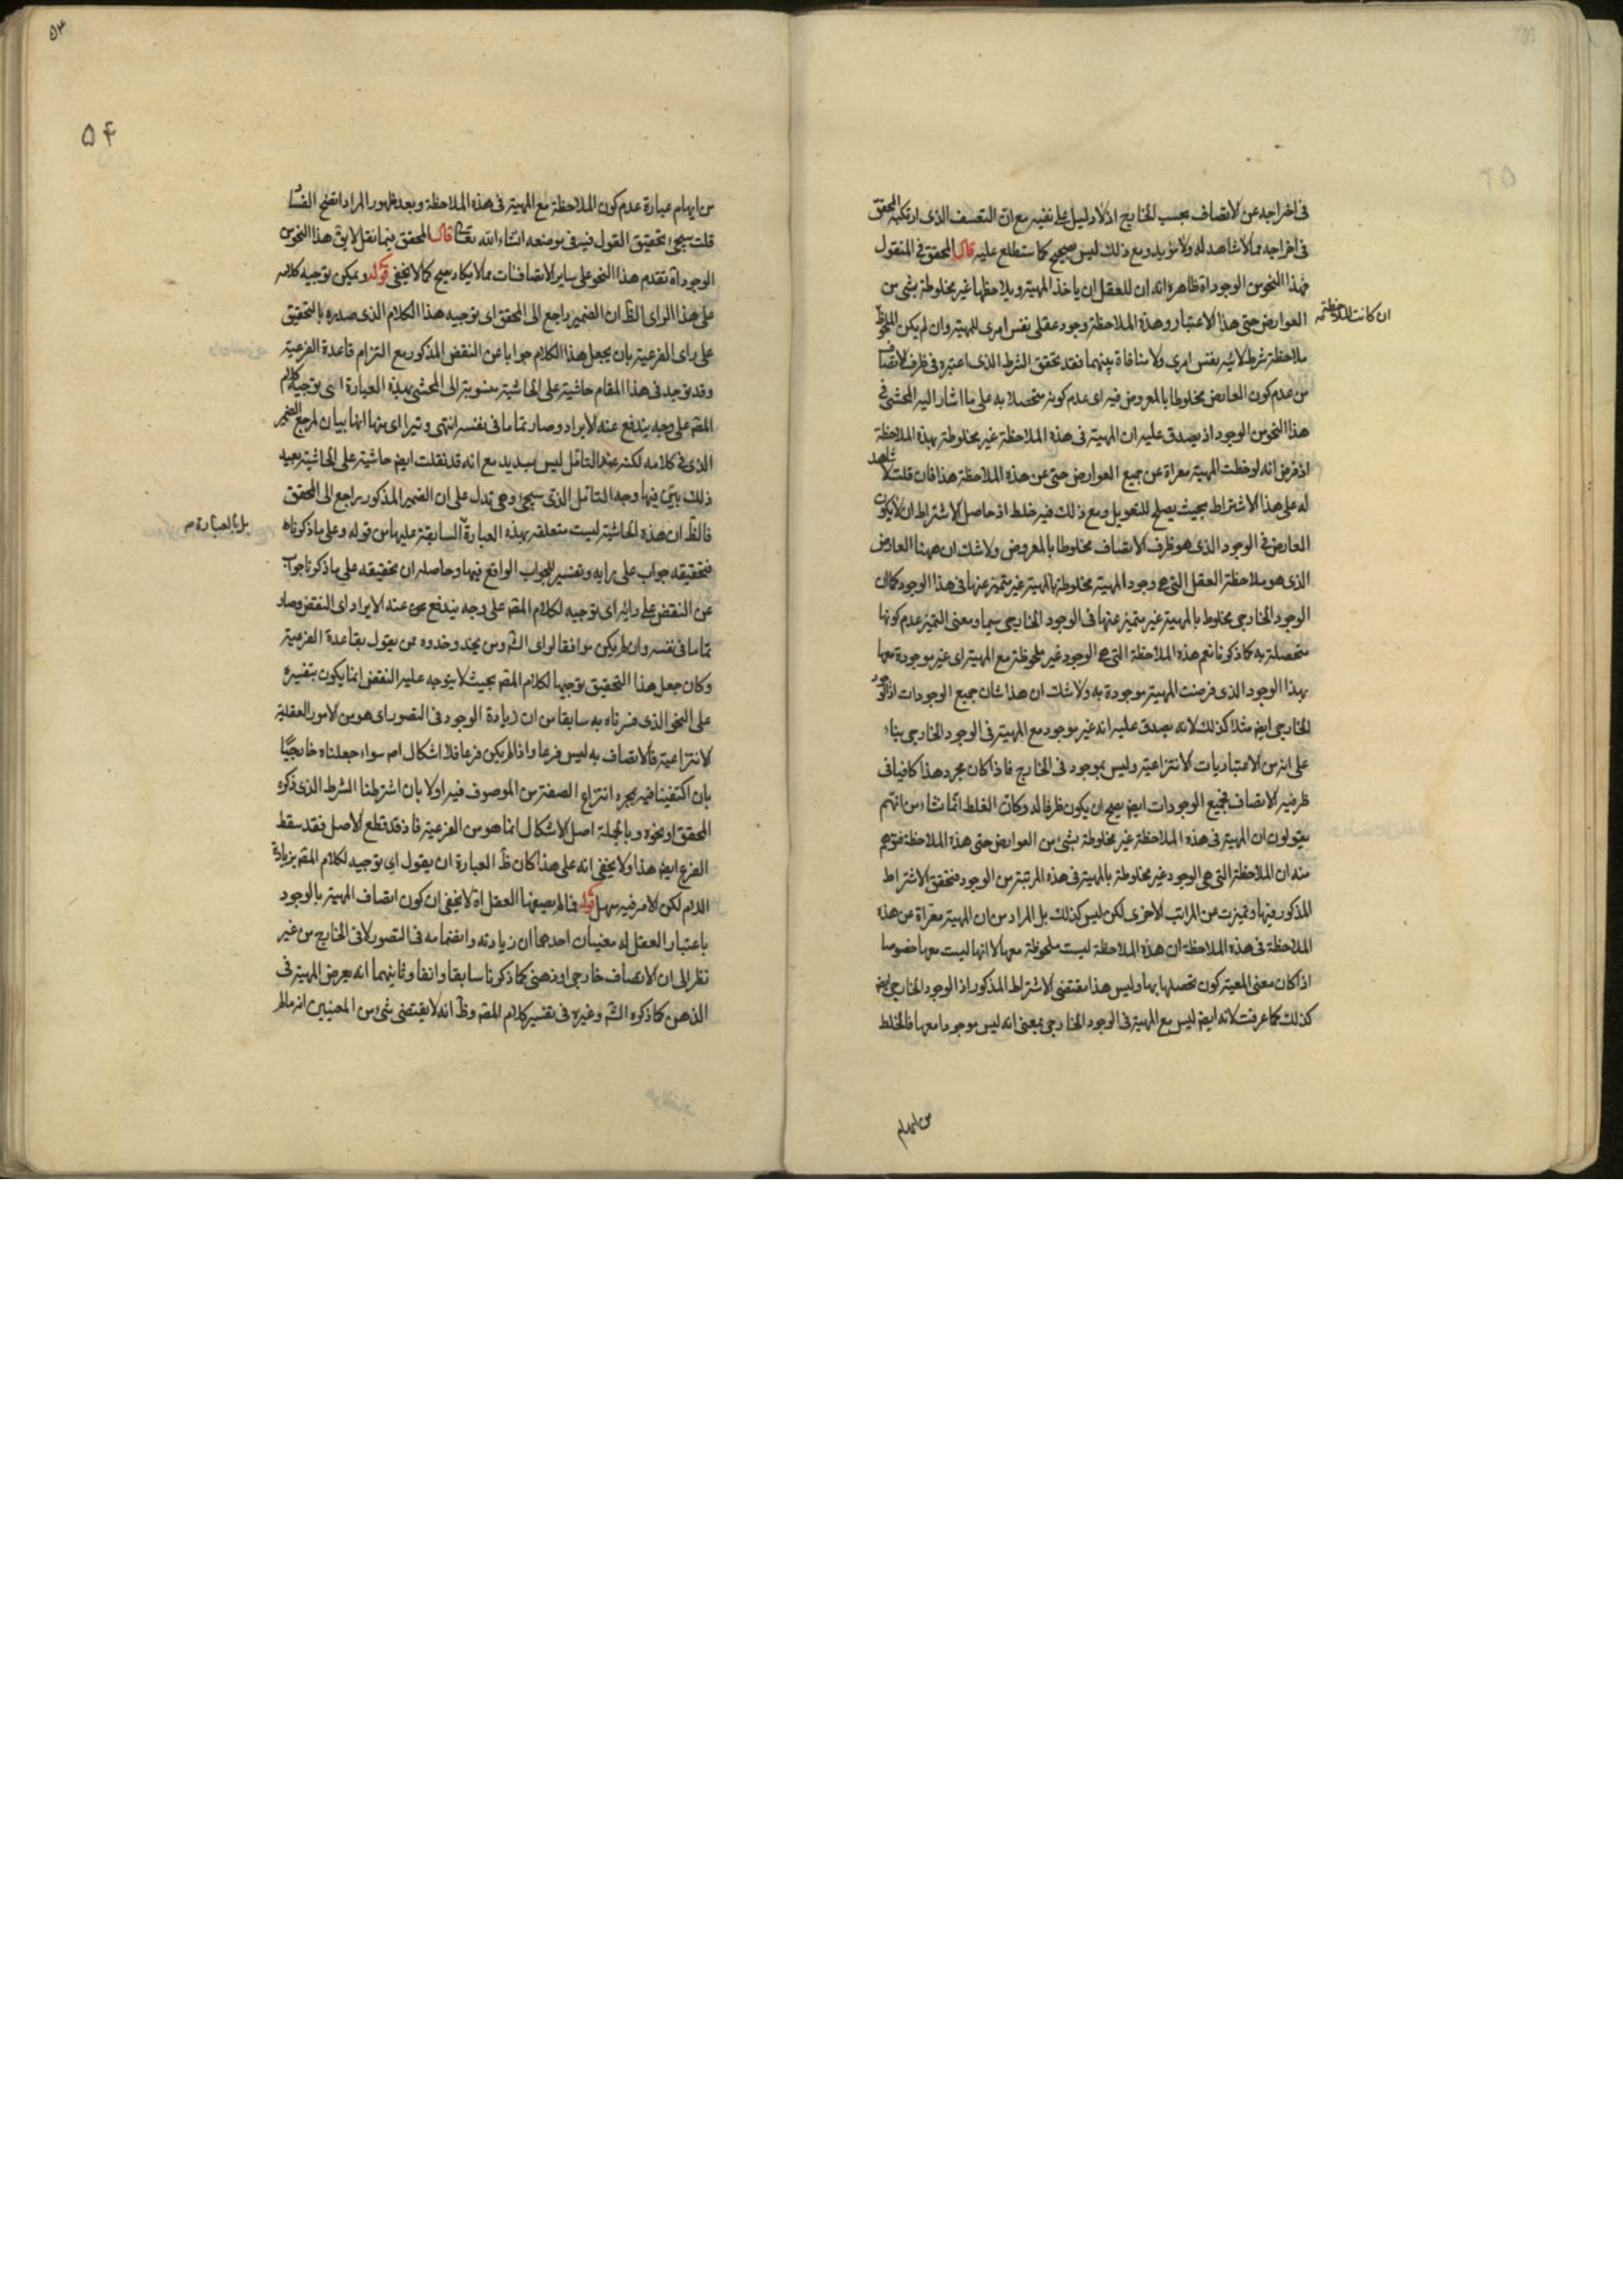 في اخراجه عن الاتصاف بحسب الخارج اذ لا دليل على نفيه مع ان التعسف الذى ارتكبه المحقق
في اخراجه مما لا شاهد له ولا مؤيد ومع ذلك ليس بصحيح كما ستطلع عليه قال المحقق في المنقول
فهذا النحو من الوجود اه ظاهره انه ان للعقل ان ياخذ المهية ويلاحظها غير مخلوطة بشئ من
العوارض حتى هذا الاعتبار وهذه الملاحظة وجود عقلى نفس امرى للمهية وان لم يكن
ان كانت الملاحظة
ملاحظته بشرط لا شئ بنفس امرى ولا منافاة بينهما فقد تحقق الشرط الذى اعتبره في ظرف الاتصاف
من عدم كون العارض مخلوطا بالمعروض فيه اى عدم كونه متحصلا به على ما اشار اليه المحشى في
هذا النحو من الوجود اذ يصدق عليه ان المهية في هذه الملاحظة غير مخلوطة بهذه الملاحظة
اذ فرض انه لوحظت المهية معراة عن جميع العوارض حتى عن هذه الملاحظة هذا فان قلت لا شاهد
له على هذا الاشتراط بحيث يصلح للتعويل ومع ذلك فيه خلط اذ حاصل الاشتراط ان لا يكون
العارض في الوجود الذى هو ظرف الاتصاف مخلوطا بالمعروض ولا شك ان ههنا العارض
الذى هو ملاحظة العقل التى هى وجود المهية مخلوطة بالمهية غير متميز عنها في هذا الوجود كما ان
الوجود الخارجى مخلوط بالمهية غير متميز عنها في الوجود الخارجى سيما ومعنى التميز عدم كونها
متحصلة به كما ذكرنا نعم هذه الملاحظة التى هى الوجود غير ملحوظة مع المهية اى غير موجودة معها
بهذا الوجود الذى فرضت المهية موجودة به ولا شك ان هذا شان جميع الوجودات اذ الوجود
الخارجى ايض مثلا كذلك لانه يصدق عليه انه غير موجود مع المهية في الوجود الخارجى بناء
على انه من الاعتباريات الانتزاعية وليس بموجود في الخارج فاذا كان مجرد هذا كافيا في
ظرفية الاتصاف فجميع الوجودات ايض يصح ان يكون ظرفا له وكان الغلط انما نشاء من انهم
يقولون ان المهية في هذه الملاحظة غير مخلوطة بشئ من العوارض حتى هذه الملاحظة فتوهم
منه ان الملاحظة التى هى الوجود غير مخلوطة بالمهية في هذه المرتبة من الوجود فتحقق الاشتراط
المذكور فيها وتميزت عن المراتب الاخرى لكن ليس كذلك بل المراد من ان المهية معراة عن هذه
الملاحظة في هذه الملاحظة ان هذه الملاحظة ليست ملحوظة معها لا انها ليست معها خصوصا
اذا كان معنى المعية كون تحصلها بها وليس هذا مقتضى الاشتراط المذكور اذ الوجود الخارجى ايض
كذلك كما عرفت لانه ايض ليس مع المهية في الوجود الخارجى بمعنى انه ليس موجودا معها فالخلط
من ايهام
۵۴
من ايهام عبارة عدم كون الملاحظة مع المهية في هذه الملاحظة وبعد ظهور المراد اتضح الفساد
قلت سيجئ تحقيق القول فيه في موضعه انشاء الله تعالى قال المحقق فيما نقل لا يق هذا النحو من
الوجود اه تقدم هذا النحو على ساير الاتصافات مما لا يكاد يصح كما لا يخفى قوله ويمكن توجيه كلامه
على هذا الراى الظ ان الضمير راجع الى المحقق اى توجيه هذا الكلام الذى صدره بالتحقيق
على راى الفرعية بان يجعل هذا الكلام جوابا عن النقض المذكور مع التزام قاعدة الفرعية
وقد توجد في هذا المقام حاشية على الحاشية منسوبة الى المحشى بهذه العبارة اى توجيه كلام
المقه على وجه يندفع عنه الايراد وصار تماما في نفسه انتهى وتيراى منها انها بيان لمرجع الضمير
الذى في كلامه لكنه عند التامل ليس بسديد مع انه قد نقلت ايض حاشية على الحاشية بعيد
ذلك بين فيها وجه التامل الذى سيجئ وهى تدل على ان الضمير المذكور راجع الى المحقق
فالظ ان هذه الحاشية ليست متعلقة بهذه العبارة السابقة عليها من قوله وعلى ما ذكرناه
بل بالعبارة
فتحقيقه جواب على رايه وتفسير للجواب الواقع فيها وحاصله ان تحقيقه على ما ذكرنا جواب
عن النقض على رايه اى توجيه لكلام المقه على وجه يندفع عنه الايراد اى النقض وصار
تماما في نفسه وان لم يكن موافقا لراى الش ومن يحذو حذوه ممن يقول بقاعدة الفرعية
وكان جعل هذا التحقيق توجيها لكلام المقه بحيث لا يتوجه عليه النقض انما يكون بتفسيره
على النحو الذى فسرناه به سابقا من ان زيادة الوجود في التصور اى هو من الامور العقلية
الانتزاعية فالاتصاف به ليس فرعا واذا لم يكن فرعا فلا اشكال اصه سواء جعلناه خارجيا
بان اكتفينا فيه بمجرد انتزاع الصفة من الموصوف فيه اولا بان اشترطنا الشرط الذى ذكره
المحقق او نحوه وبالجملة اصل الاشكال انما هو من الفرعية فاذ قد قطع الاصل فقد سقط
الفرع ايض هذا ولا يخفى انه على هذا كان ظ العبارة ان يقول اى توجيه لكلام المقه بزيادة
اللام لكن الامر فيه سهل قوله فالم يصبغها العقل اه لا يخفى ان كون اتصاف المهية بالوجود
باعتبار العقل له معنيان احدهما ان زيادته وانضمامه في التصور لا في الخارج من غير
نظر الى ان الاتصاف خارجى او ذهنى كما ذكرنا سابقا وانفا وثانيهما انه يعرض المهية في
الذهن كما ذكره الش وغيره في تفسير كلام المقه وظ انه لا يقتضى شئ من المعنيين انه ما لم